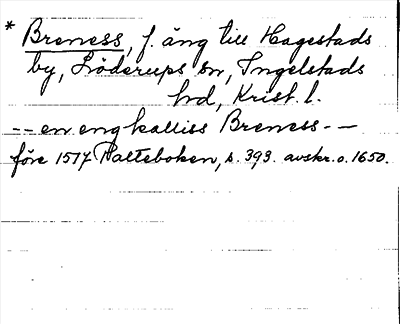 * Breness, f. äng till Hagestads
by, Löderups sn, Ingelstads
hd, Krist. l.
-- en eng kalliss Breness --
före 1517 Palteboken, s. 393. avskr. o. 1650.